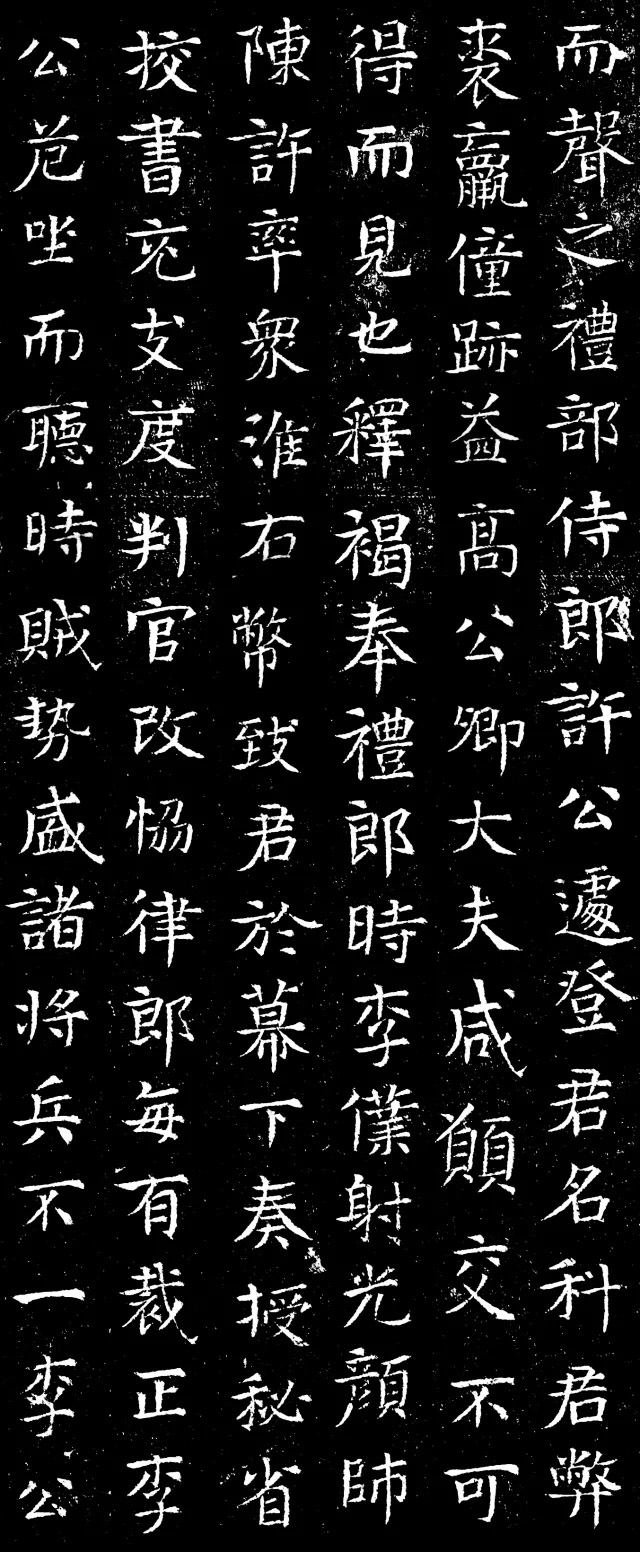 而聲之禮部侍郎許公遽登君名科君弊
裘羸僮跡益高公卿大夫咸願交不可
得而見也釋褐奉禮郎時李僕射光顏帥
陳許率衆淮右幣致君於幕下奏授秘省
挍書充支度判官改恊律郎每有裁正李
公危坐而聽時賊勢盛諸將兵不一李公